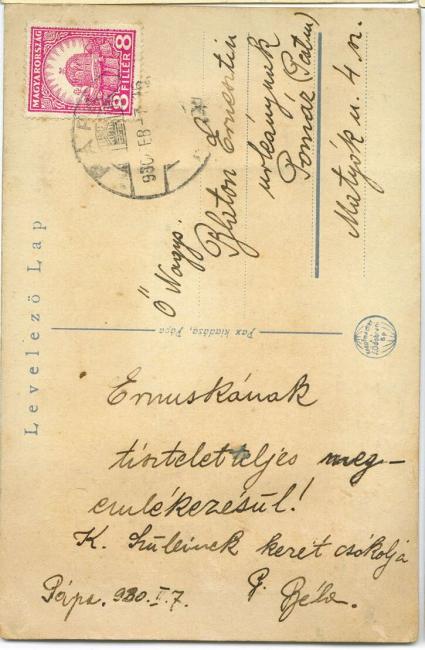 Levelező Lap
MAGYARORSZÁG
8 FILLÉR 8
PÁPA
930 FEB
Ő Nagys.
Platon Ernesztin
urleánynak
Pomáz (Patm)
Mátyás u. 4 sz.
Pax kiadása, Pápa
Ernuskának
tiszteletteljes meg-
emlékezésül!
K. Szüleinek kezét csókolja
P. Béla.
Pápa. 930. II. 7.